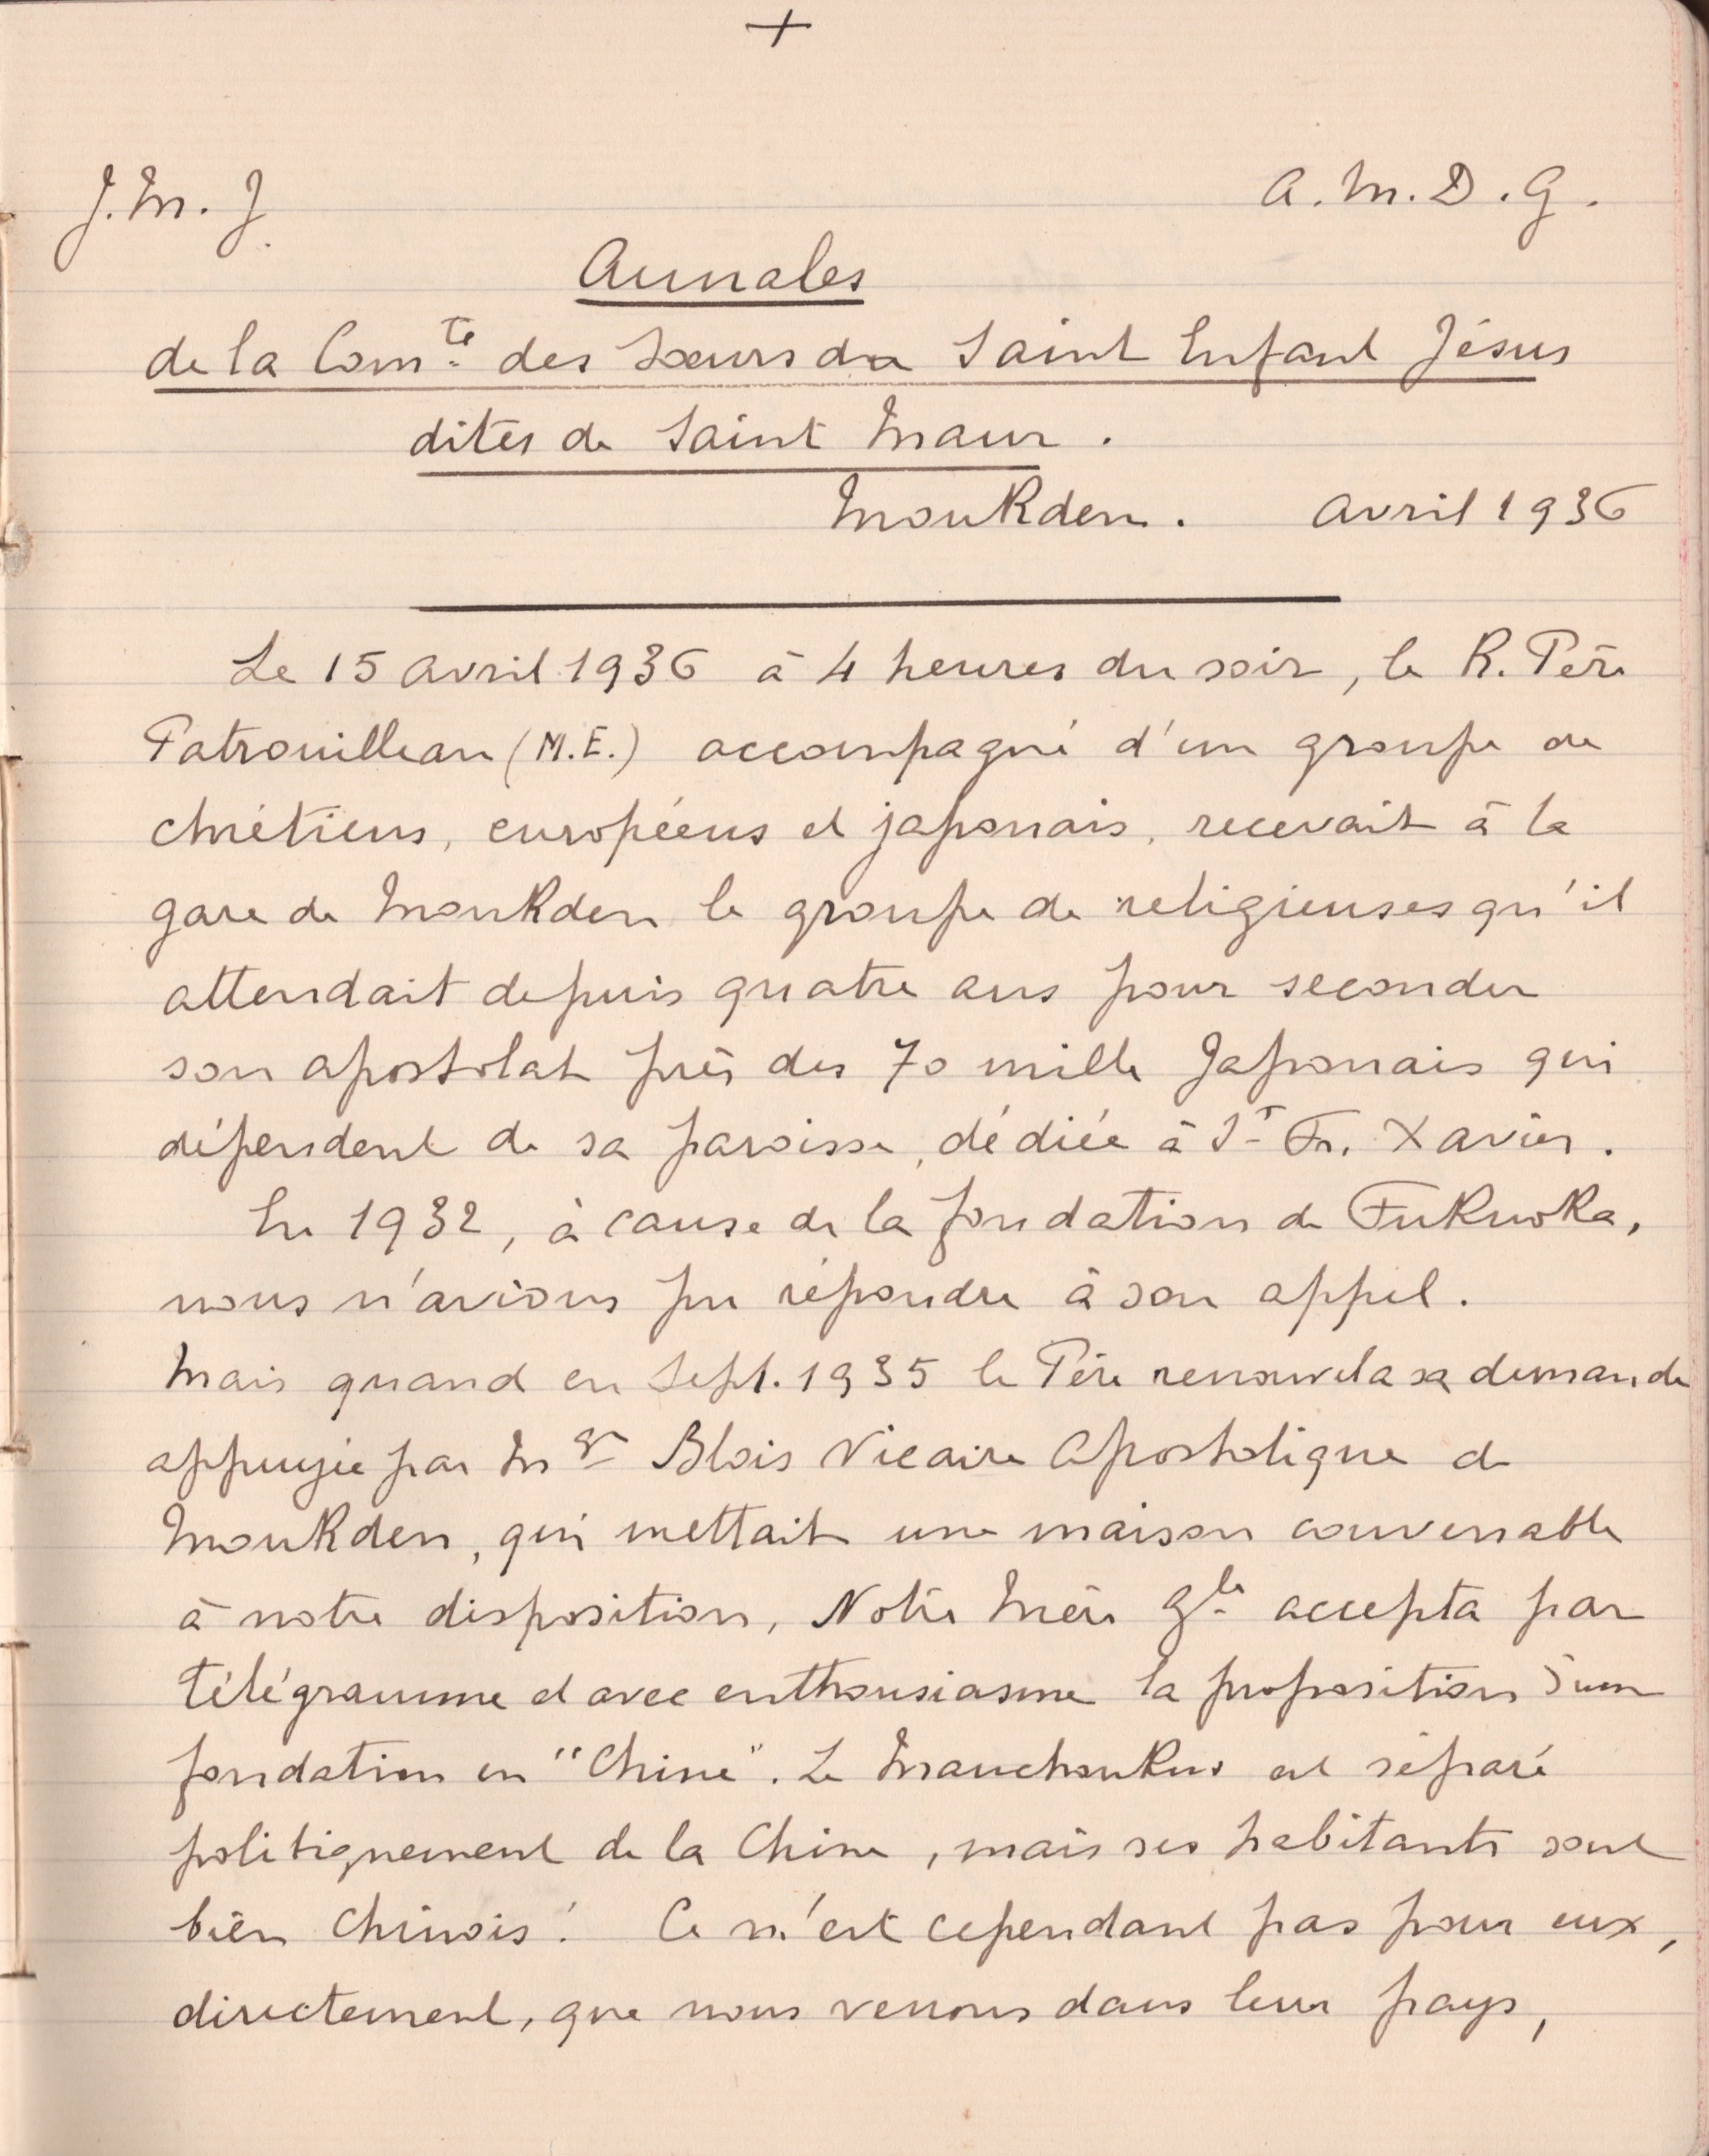 +
J. M. J.
A. M. D. G.
Annales
de la Comté des Sœurs du Saint Enfant Jésus
dites de Saint Maur.
Moukden. Avril 1936
Le 15 avril 1936 à 4 heures du soir, le R. Père
Patrouilleau (M.E.) accompagné d'un groupe de
chrétiens, européens et japonais, recevait à la
gare de Moukden le groupe de religieuses qu'il
attendait depuis quatre ans pour seconder
son apostolat près des 70 mille Japonais qui
dépendent de sa paroisse, dédiée à St Fr. Xavier.
En 1932, à cause de la fondation de Fukuoka,
nous n'avions pu répondre à son appel.
Mais quand en Sept. 1935 le Père renouvela sa demande
appuyée par Mgr Blois Vicaire Apostolique de
Moukden, qui mettait une maison convenable
à notre disposition, Notre Mère Gle accepta par
télégramme et avec enthousiasme la proposition d'une
fondation en "Chine". Le Manchoukuo est séparé
politiquement de la Chine, mais ses habitants sont
bien Chinois! Ce n'est cependant pas pour eux,
directement, que nous venons dans leur pays,